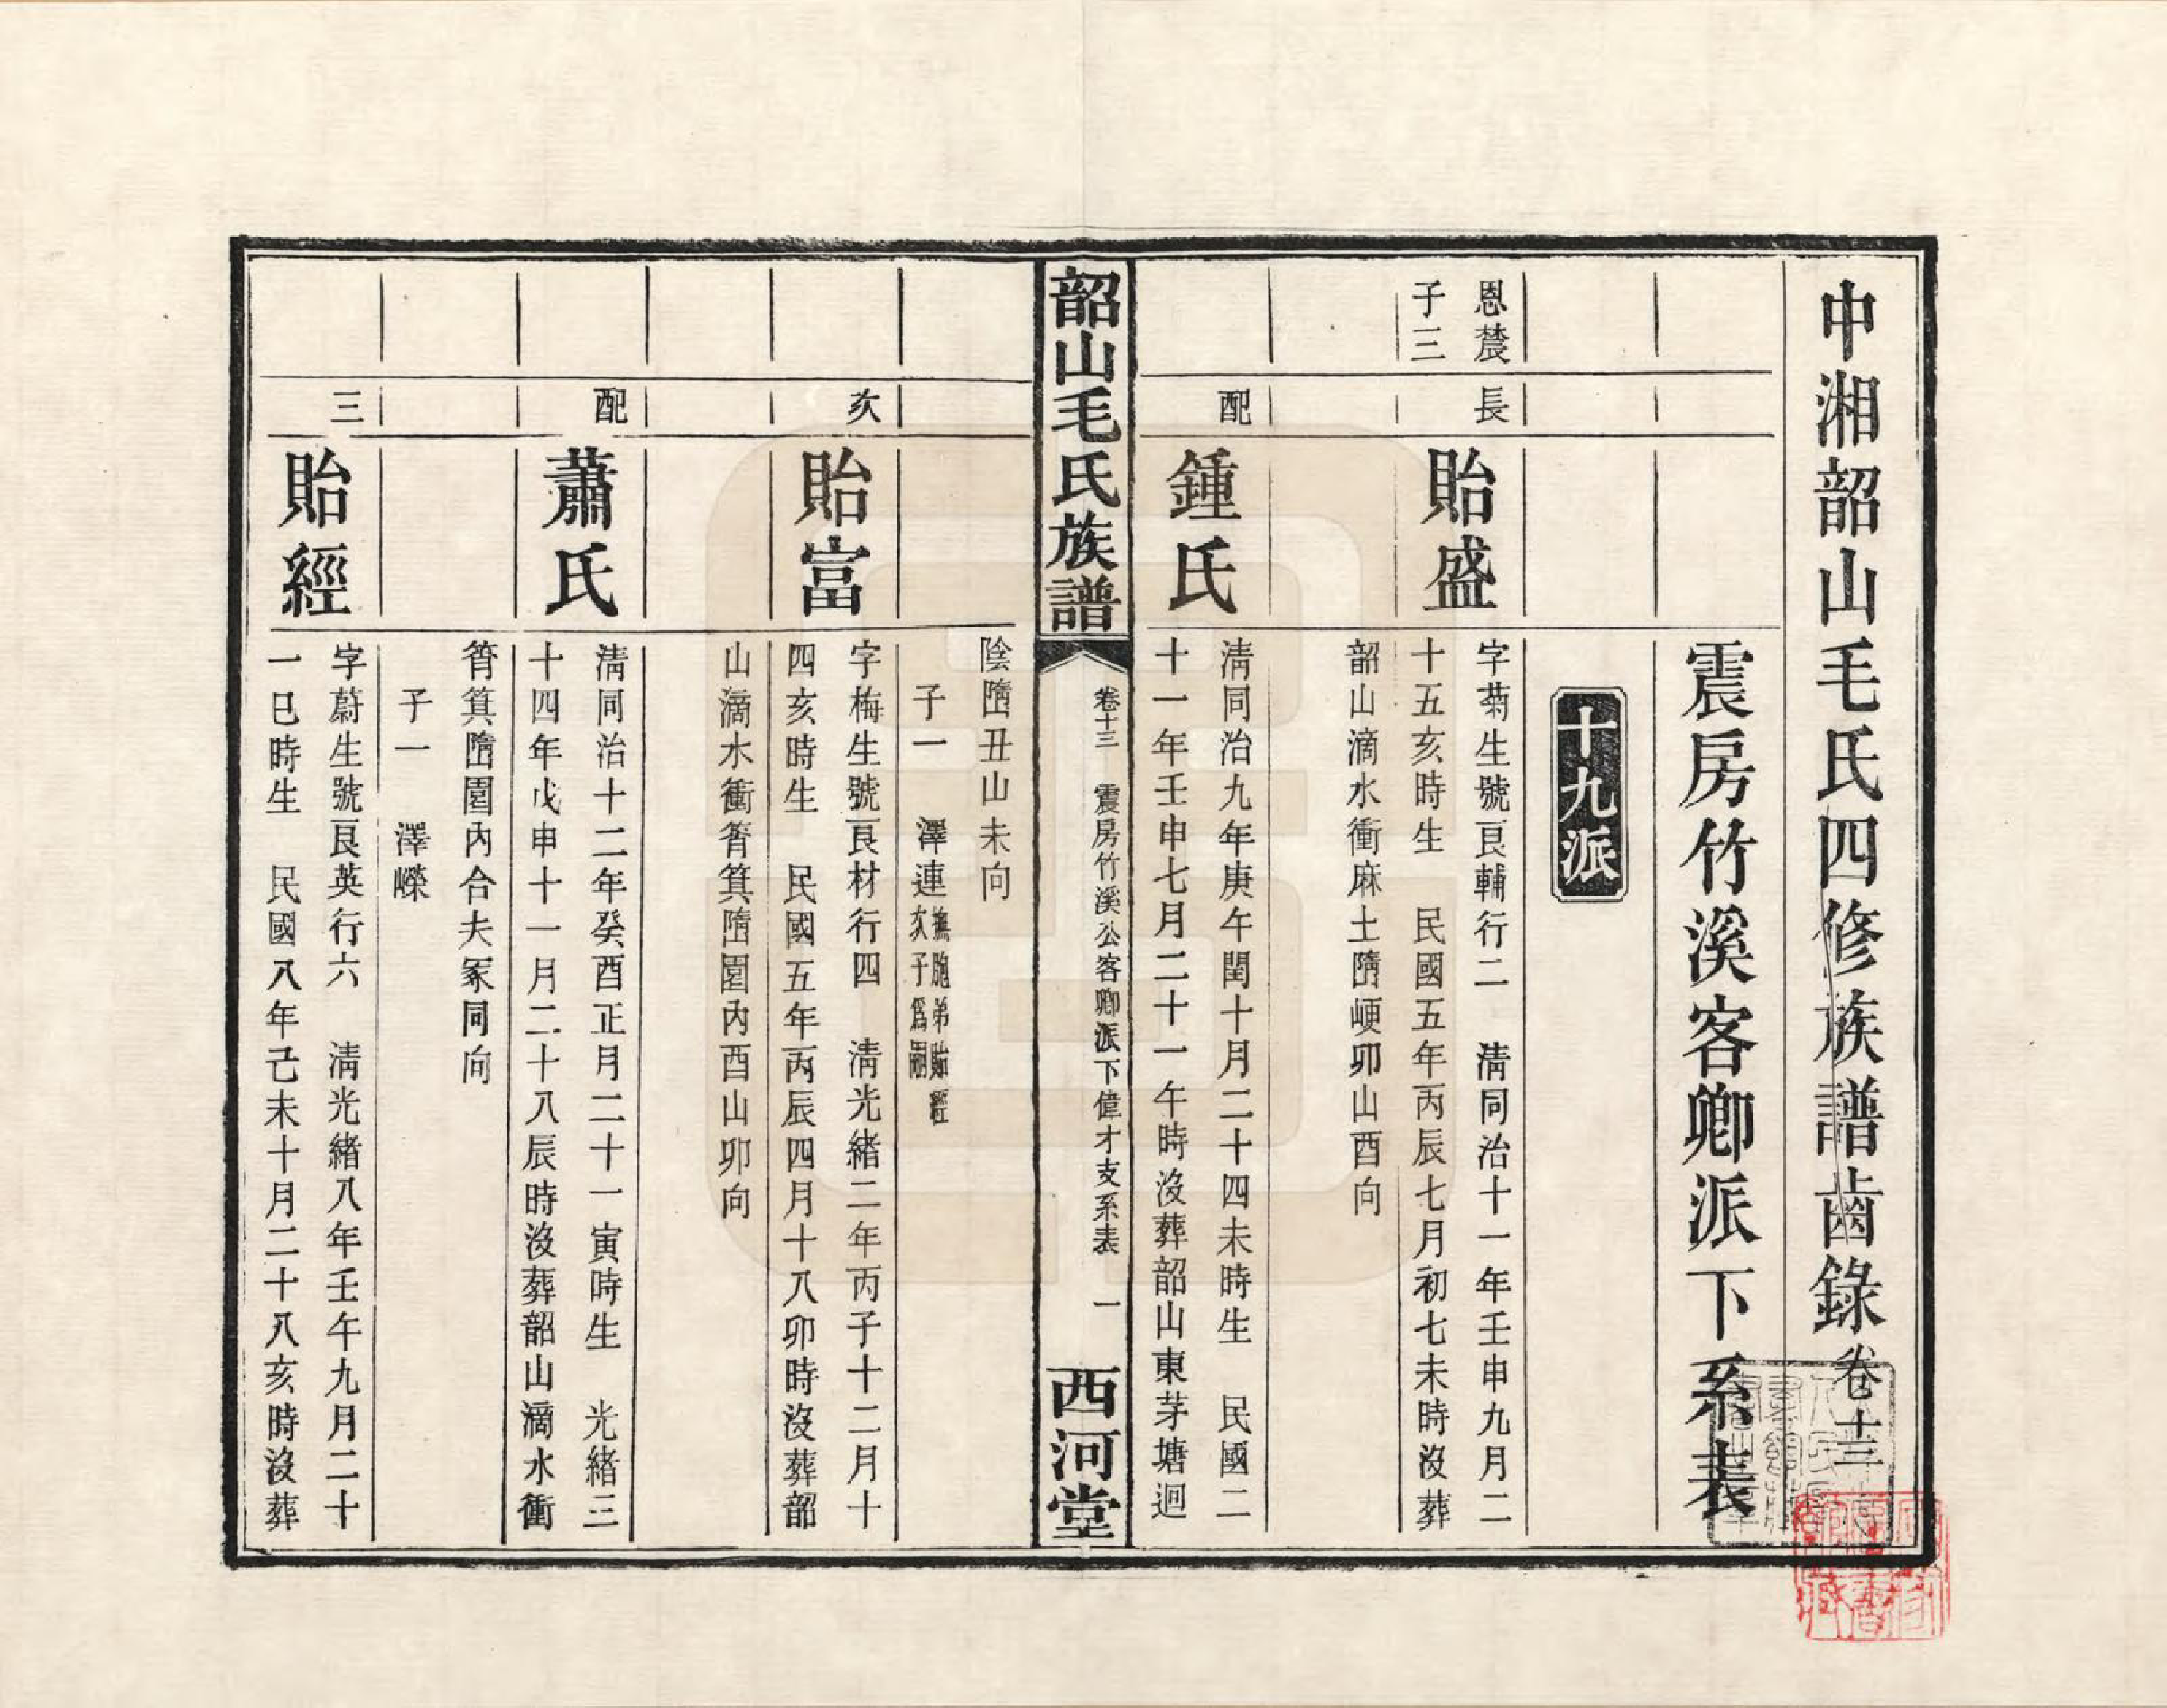 中湘韶山毛氏四修族譜齒錄卷十三
震房竹溪客卿派下系表
十九派
恩䕠
子三
長
貽盛
字菊生號良輔行二 清同治十一年壬申九月二
十五亥時生 民國五年丙辰七月初七未時沒葬
韶山滴水衝麻土墮峺卯山酉向
配
鍾氏
清同治九年庚午閏十月二十四未時生 民國二
十一年壬申七月二十一午時沒葬韶山東茅塘迴
韶山毛氏族譜
卷十三 震房竹溪公客卿派下偉才支系表 一
西河堂
陰墮丑山未向
子一 澤連撫胞弟貽經
次子爲嗣
次
貽富
字梅生號良材行四 清光緒二年丙子十二月十
四亥時生 民國五年丙辰四月十八卯時沒葬韶
山滴水衝筲箕墮園內酉山卯向
配
蕭氏
清同治十二年癸酉正月二十一寅時生 光緒三
十四年戊申十一月二十八辰時沒葬韶山滴水衝
筲箕墮園內合夫冢同向
子一 澤嶸
三
貽經
字蔚生號良英行六 清光緒八年壬午九月二十
一巳時生 民國八年己未十月二十八亥時沒葬